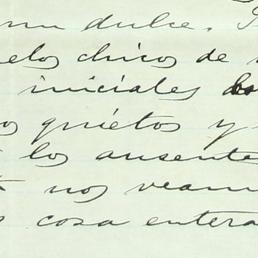 un dulce.
elos chicos de
iniciales
os quietos y
los ausente
nos veam
s cosa entera